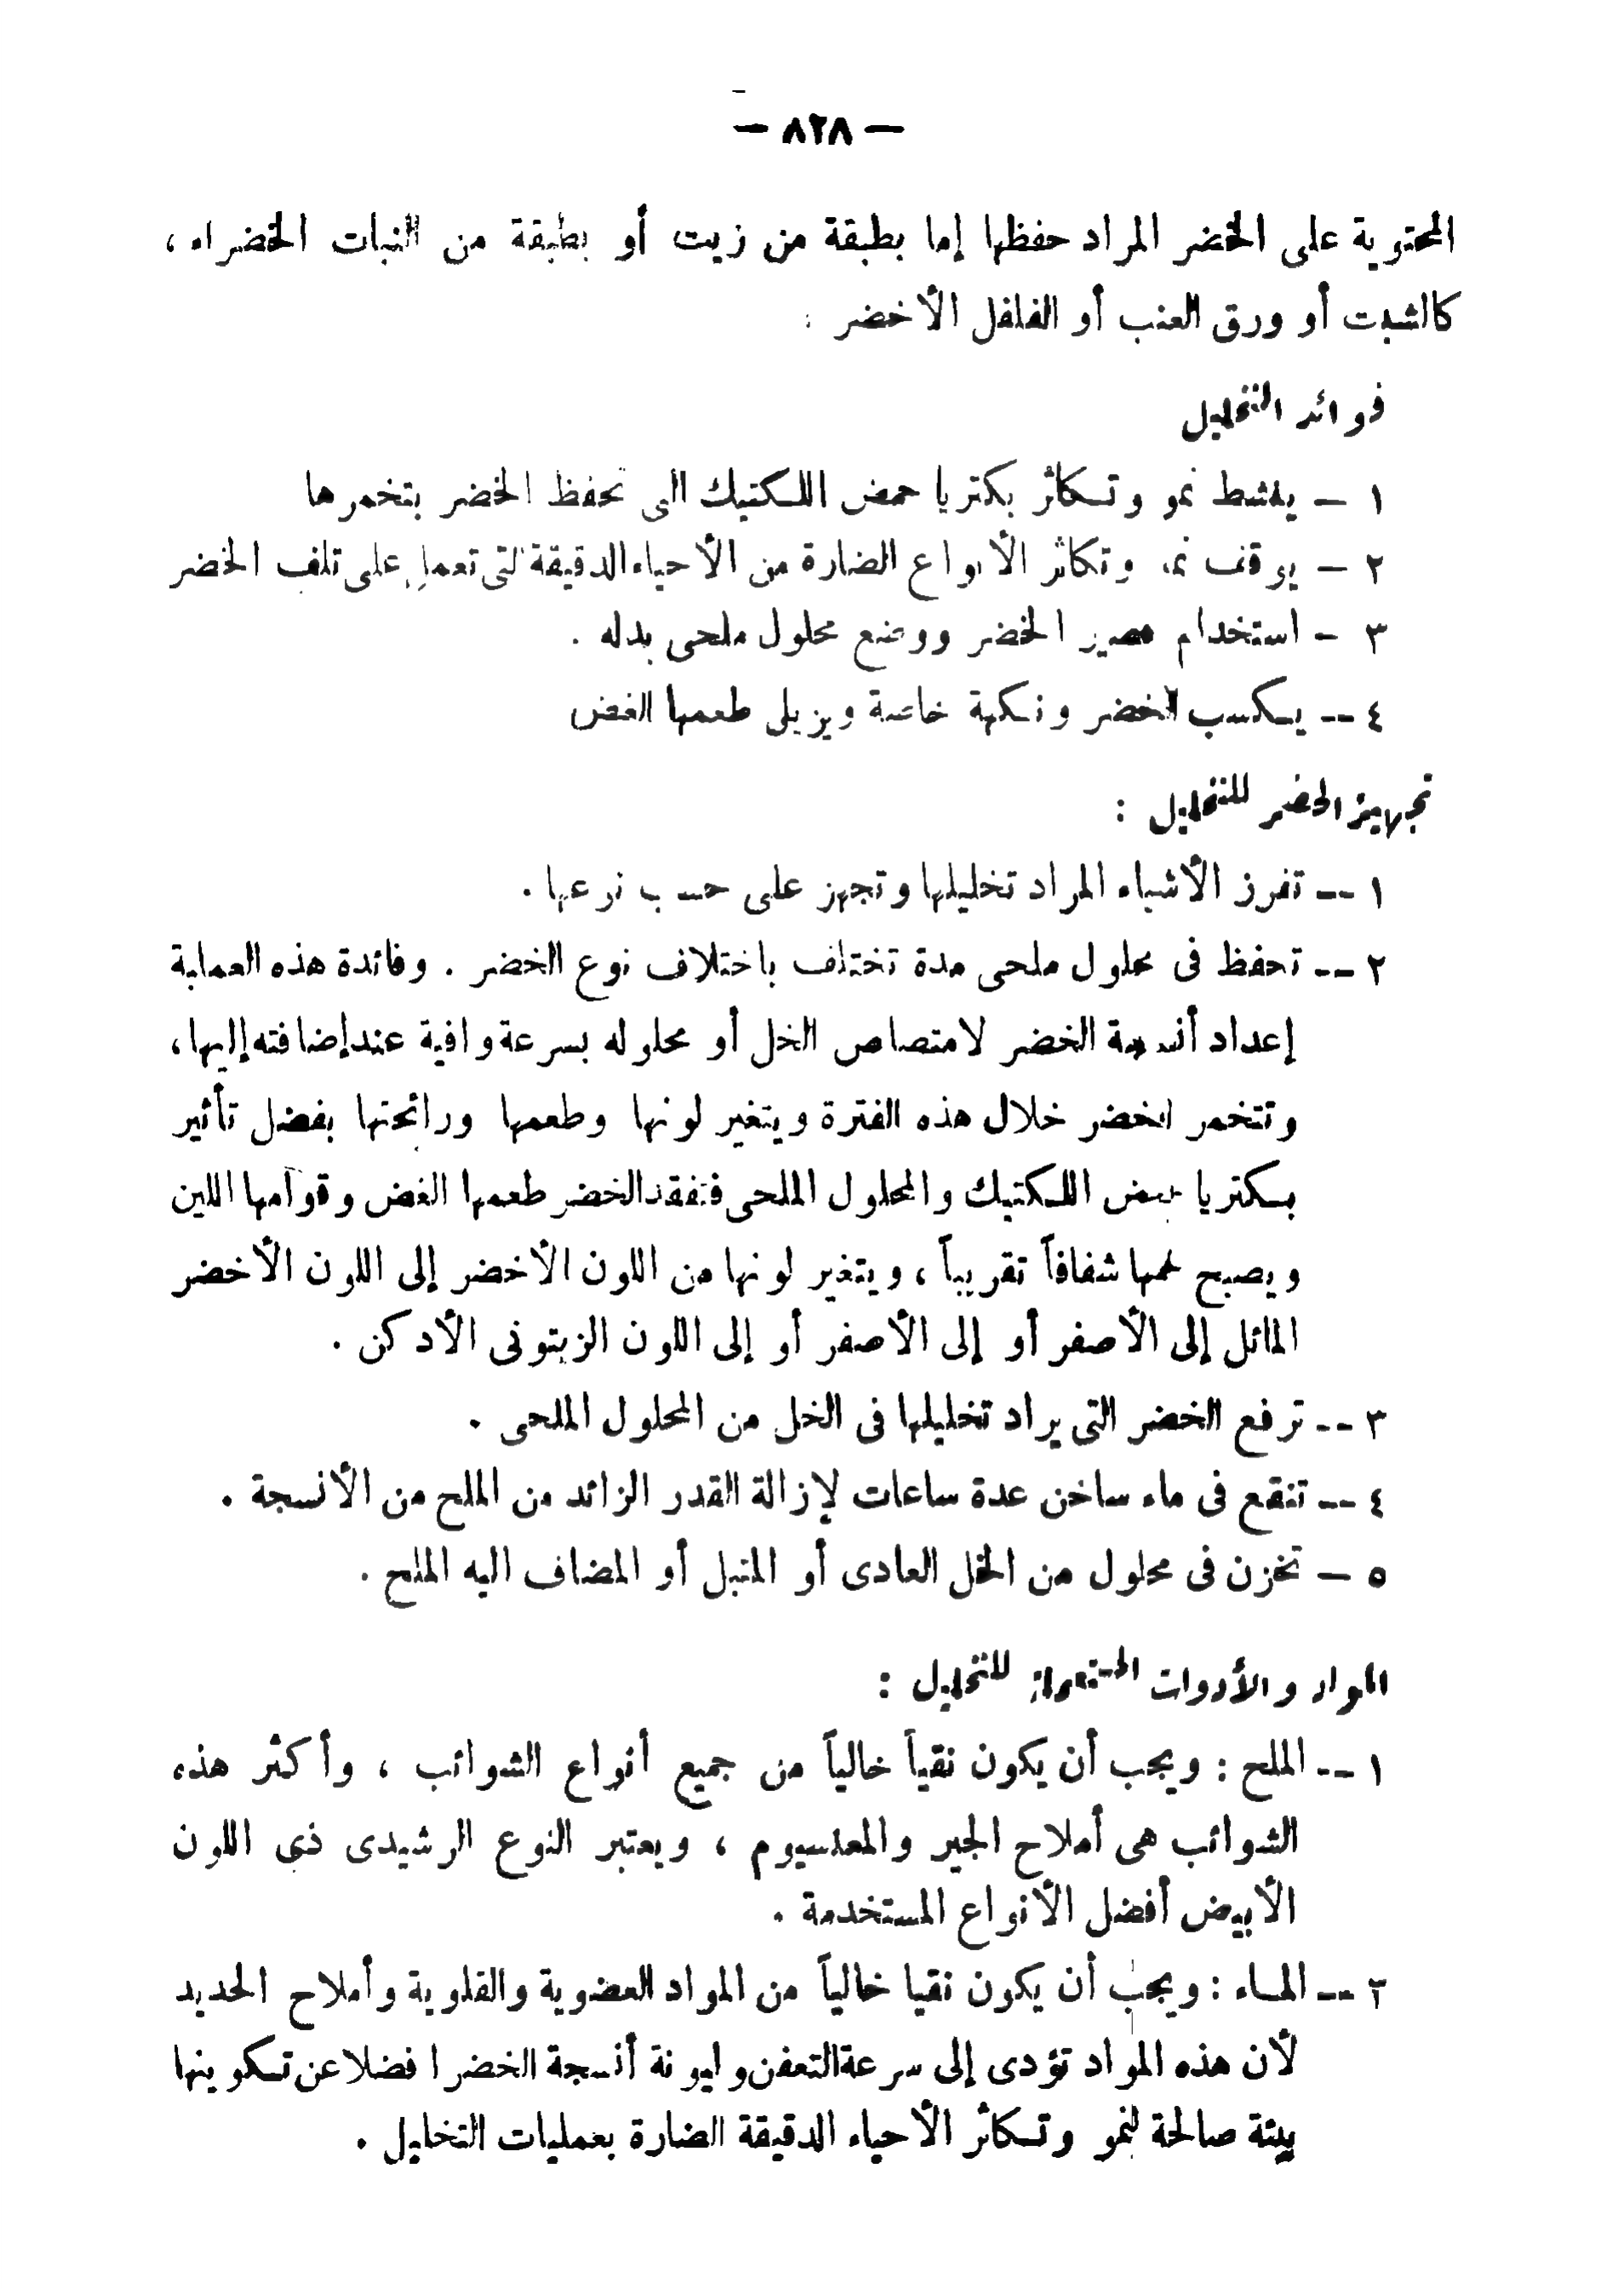 — ٨٢٨ —
المحتوية على الخضر المراد حفظها إما بطبقة من زيت أو بطبقة من النبات الخضراء ،
كالشبت أو ورق العنب أو الفلفل الأخضر :
فوائد التخليل
١ — ينشط نمو وتكاثر بكتريا حمض اللكتيك التى تحفظ الخضر بتخمرها
٢ — يوقف نمو وتكاثر الأنواع الضارة من الأحياء الدقيقة التى تعمل على تلف الخضر
٣ - استخدام عصير الخضر ووضع محلول ملحى بدله .
٤ -- يكسب الخضر ونكهة خاصة ويزيل طعمها الغض
تجهيز الخضر للتخليل :
١ -- تفرز الأشياء المراد تخليلها وتجهز على حسب نوعها .
٢ -- تحفظ فى محلول ملحى مدة تختلف باختلاف نوع الخضر . وفائدة هذه العملية
إعداد أنسجة الخضر لامتصاص الخل أو محلوله بسرعة وافية عند إضافته إليها ،
وتتخمر الخضر خلال هذه الفترة ويتغير لونها وطعمها ورائحتها بفضل تأثير
بكتريا حمض اللكتيك والمحلول الملحى فتفقد الخضر طعمها الغض وقوامها اللين
ويصبح لحمها شفافاً تقريباً ، ويتغير لونها من اللون الأخضر إلى اللون الأخضر
المائل إلى الأصفر أو إلى الأصفر أو إلى اللون الزيتونى الأدكن .
٣ -- ترفع الخضر التى يراد تخليلها فى الخل من المحلول الملحى .
٤ -- تنقع فى ماء ساخن عدة ساعات لإزالة القدر الزائد من الملح من الأنسجة .
٥ — تخزن فى محلول من الخل العادى أو المتبل أو المضاف اليه الملح .
المواد والأدوات المستعملة للتخليل :
١ -- الملح : ويجب أن يكون نقياً خالياً من جميع أنواع الشوائب ، وأكثر هذه
الشوائب هى أملاح الجير والمغنسيوم ، ويعتبر النوع الرشيدى ذى اللون
الأبيض أفضل الأنواع المستخدمة .
٢ -- الماء : ويجب أن يكون نقيا خالياً من المواد العضوية والقلوية وأملاح الحديد
لأن هذه المواد تؤدى إلى سرعة التعفن وليونة أنسجة الخضر ا فضلا عن تكوينها
بيئة صالحة لنمو وتكاثر الأحياء الدقيقة الضارة بعمليات التخليل .